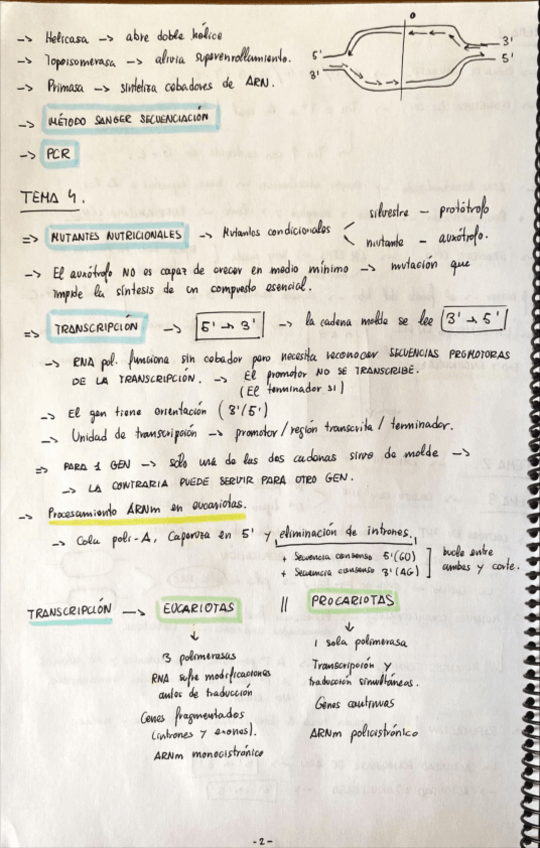 -> Helicasa -> abre doble hélice
-> Topoisomerasa -> alivia superenrollamiento.
-> Primasa -> sintetiza cebadores de ARN.
O
5'
3'
3'
5'
-> MÉTODO SANGER SECUENCIACIÓN
-> PCR
TEMA 4.
=> MUTANTES NUTRICIONALES -> Mutantes condicionales < silvestre - protótrofo
mutante - auxótrofo.
-> El auxótrofo NO es capaz de crecer en medio mínimo -> mutación que
impide la síntesis de un compuesto esencial.
=> TRANSCRIPCIÓN -> 5' -> 3' -> la cadena molde se lee 3' -> 5'
-> RNA pol. funciona sin cebador pero necesita reconocer SECUENCIAS PROMOTORAS
DE LA TRANSCRIPCIÓN. -> El promotor NO SE TRANSCRIBE.
(El terminador sí)
-> El gen tiene orientación (3'/5')
-> Unidad de transcripción -> promotor / región transcrita / terminador.
=> PARA 1 GEN -> sólo una de las dos cadenas sirve de molde ->
-> LA CONTRARIA PUEDE SERVIR PARA OTRO GEN.
-> Procesamiento ARNm en eucariotas.
-> Cola poli-A, Caperuza en 5' y eliminación de intrones.
+ Secuencia consenso 5'(GU)
+ Secuencia consenso 3'(AG)
] bucle entre
ambas y corte.
TRANSCRIPCIÓN -> EUCARIOTAS || PROCARIOTAS
3 polimerasas
RNA sufre modificaciones
antes de traducción
Genes fragmentados
(intrones y exones).
ARNm monocistrónico
1 sola polimerasa
Transcripción y
traducción simultáneas.
Genes continuos
ARNm policistrónico
-2-